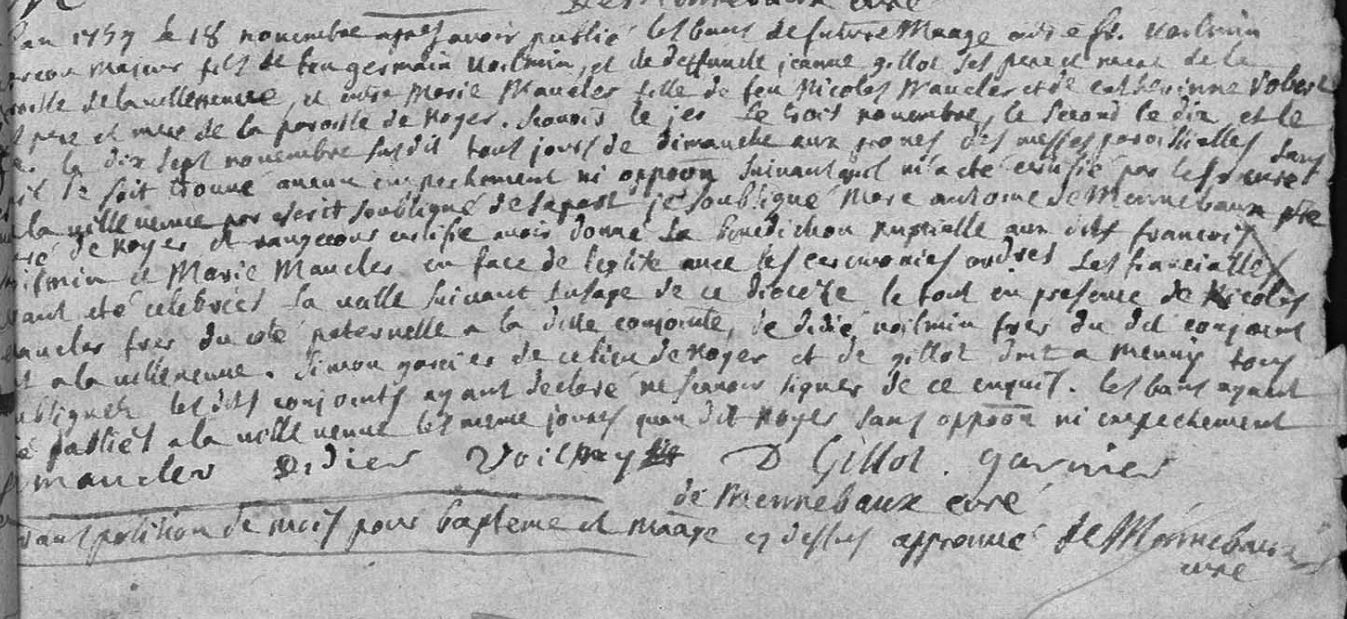 de Mennebaux curé
L'an 1757 le 18 novembre apres avoir publié les bans de future Maage entre fr. voilmin
garcon majeur fils de feu germain voilmin, et de deffuncte jeanne gillot ses pere et mere de la
paroisse de la villeneuve, et entre Marie Maucler fille de feu Nicolas Maucler et de catherinne Vobert
pere et mere de la paroisse de noyer. scavoir le jer le trois novembre, le second le dix et le
le dix sept novembre susdit tous jours de dimanche aux prones des messes paroissielles sans
qu'il se soit trouvé aucun empechement ni oppoon suivant quil m'a eté certifié par le sr curé
de la villeneuve par escrit soubligné de sa part je soubligné Marc antoine de Mennebaux ptre
curé de noyer et certifie avoir donné la benediction nuptielle aux dits francois
voilmin et Marie Maucler en face de l'eglise avec les ceremonies les fiancialles
ayant eté celebrées la veille suivant lusage de ce dioceze le tout en presence de Nicolas
maucler frer du coté paternelle a la ditte conjointe, de didié voilmin frer du dit conjoint
a la villeneuve. simon garnier de ce lieu de noyer et de gillot a mennis tous
soublignez les dits conjoints ayant declaré ne scavoir signer de ce enquis. les bans ayant
été publiés a la villeneuve les meme jours quau dit noyer sans oppoon ni empechement
maucler Didier D Gillot. garnier
de Mennebaux curé
de mois pour bapteme et maage cy dessus approuvé de Mennebaux
curé